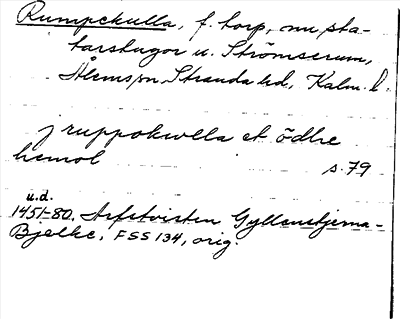 Rumpekulla, f. torp, nu sta-
tarstugor u. Strömserum,
Ålems sn, Stranda hd, Kalm. l.
j ruppokwlla et ödhe
hemol s. 79
u.d.
1451-80. Arfstvisten Gyllenstjerna-
Bjelke, FSS 134, orig.